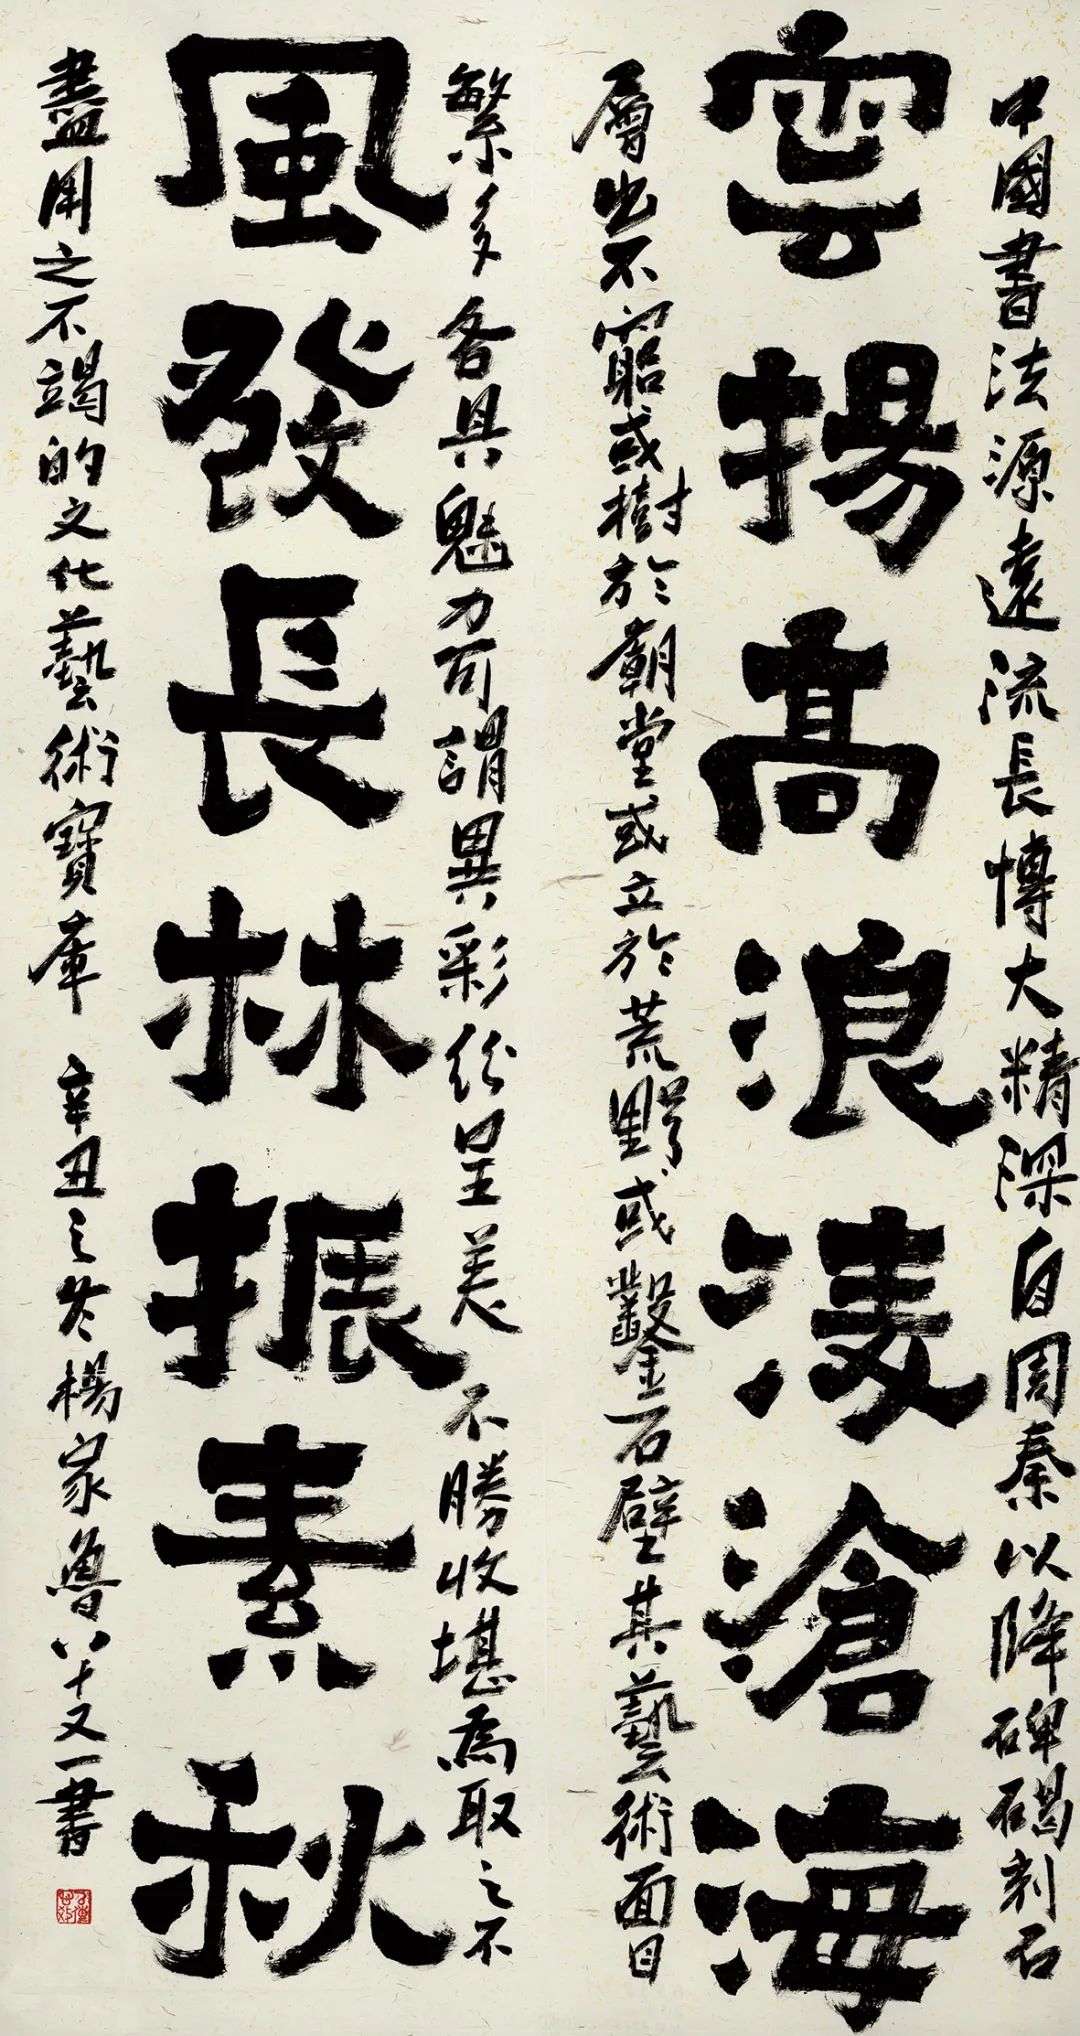 中國書法源遠流長博大精深自周秦以降碑碣刻石
雲揚高浪淩滄海
層出不窮或樹於朝堂或立於荒野或鑿石壁其藝術面目
繁多各具魅力可謂異彩紛呈美不勝收堪為取之不
風發長林振素秋
盡用之不竭的文化藝術寶庫 辛丑之冬楊家魯八十又一書